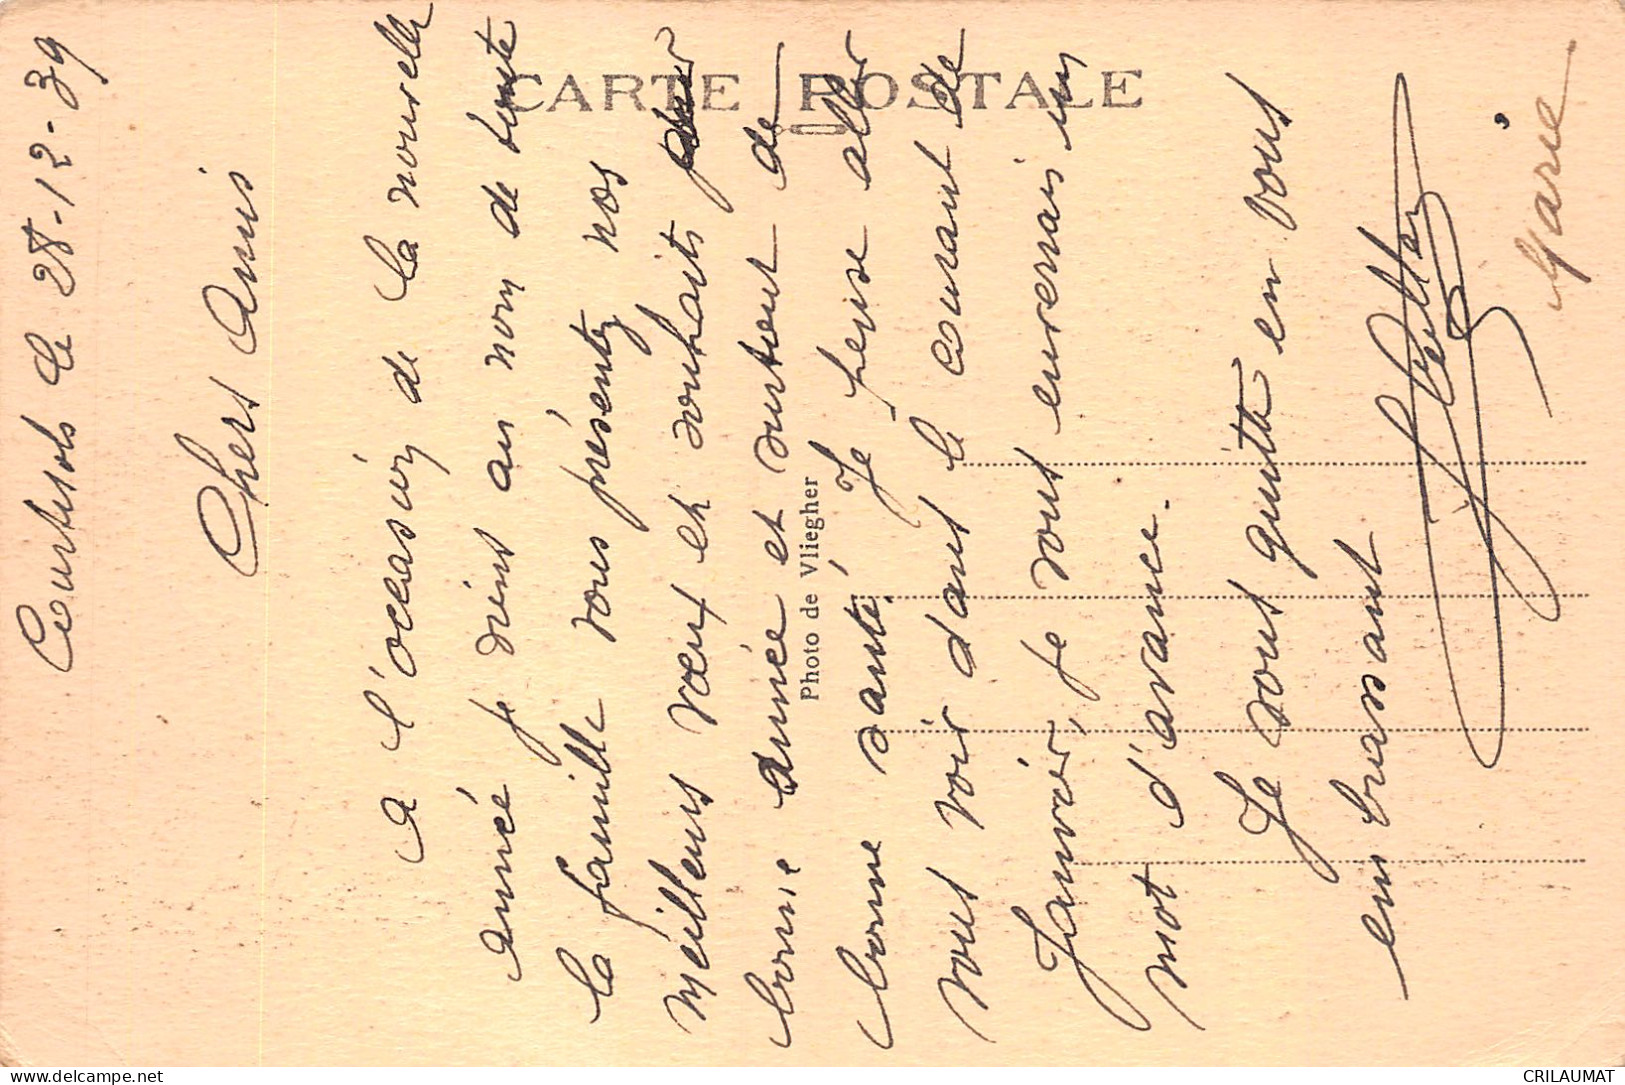 Courtisols le 28-12-39
Chers Amis
A l'occasion de la nouvelle
année je viens au nom de toute
la famille vous présentez nos
meilleurs vœux et souhaits pour
bonne année et surtout de
bonne santé. Je pense aller
vous voir dans le courant de
Janvier, je vous enverrais un
mot d'avance.
Je vous quitte en vous
embrassant
Marie
CARTE POSTALE
Photo de Vliegher
delcampe.net
CRILAUMAT